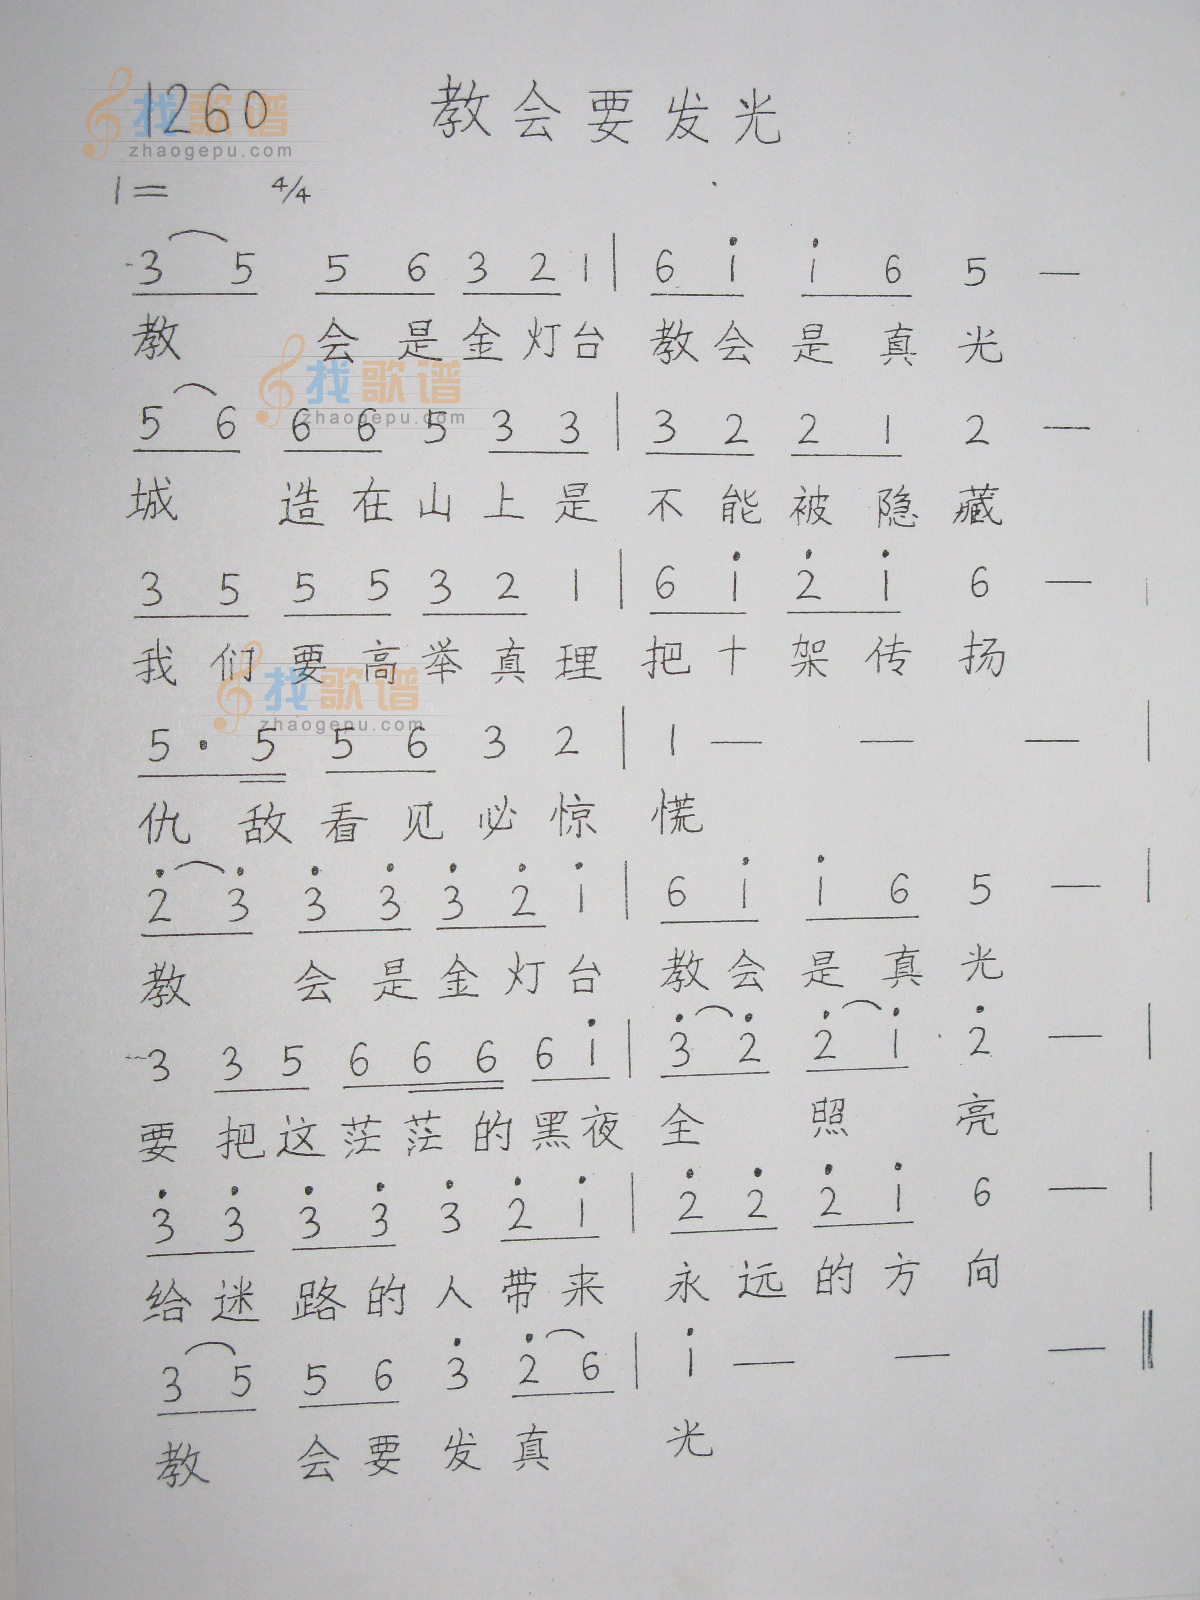 1260 教会要发光
找歌谱
zhaogepu.com
1= 4/4
3 5 5 6 3 2 1 | 6 i i 6 5 —
教 会是金灯台 教会是真光
找歌谱
zhaogepu.com
5 6 6 6 5 3 3 | 3 2 2 1 2 —
城 造在山上是 不能被隐藏
3 5 5 5 3 2 1 | 6 i 2̇ i 6 —
我们要高举真理 把十架传扬
找歌谱
zhaogepu.com
5 · 5 5 6 3 2 | 1 — — — |
仇敌看见必惊 慌
2̇ 3̇ 3̇ 3̇ 3̇ 2̇ i | 6 i i 6 5 — |
教 会是金灯台 教会是真光
3 3 5 6 6 6 6 i | 3̇ 2̇ 2̇ i 2̇ — |
要把这茫茫的黑夜 全 照 亮
3̇ 3̇ 3̇ 3̇ 3̇ 2̇ i | 2̇ 2̇ 2̇ i 6 — |
给迷路的人带来 永远的方向
3 5 5 6 3̇ 2̇ 6 | i — — — ‖
教 会要发真 光